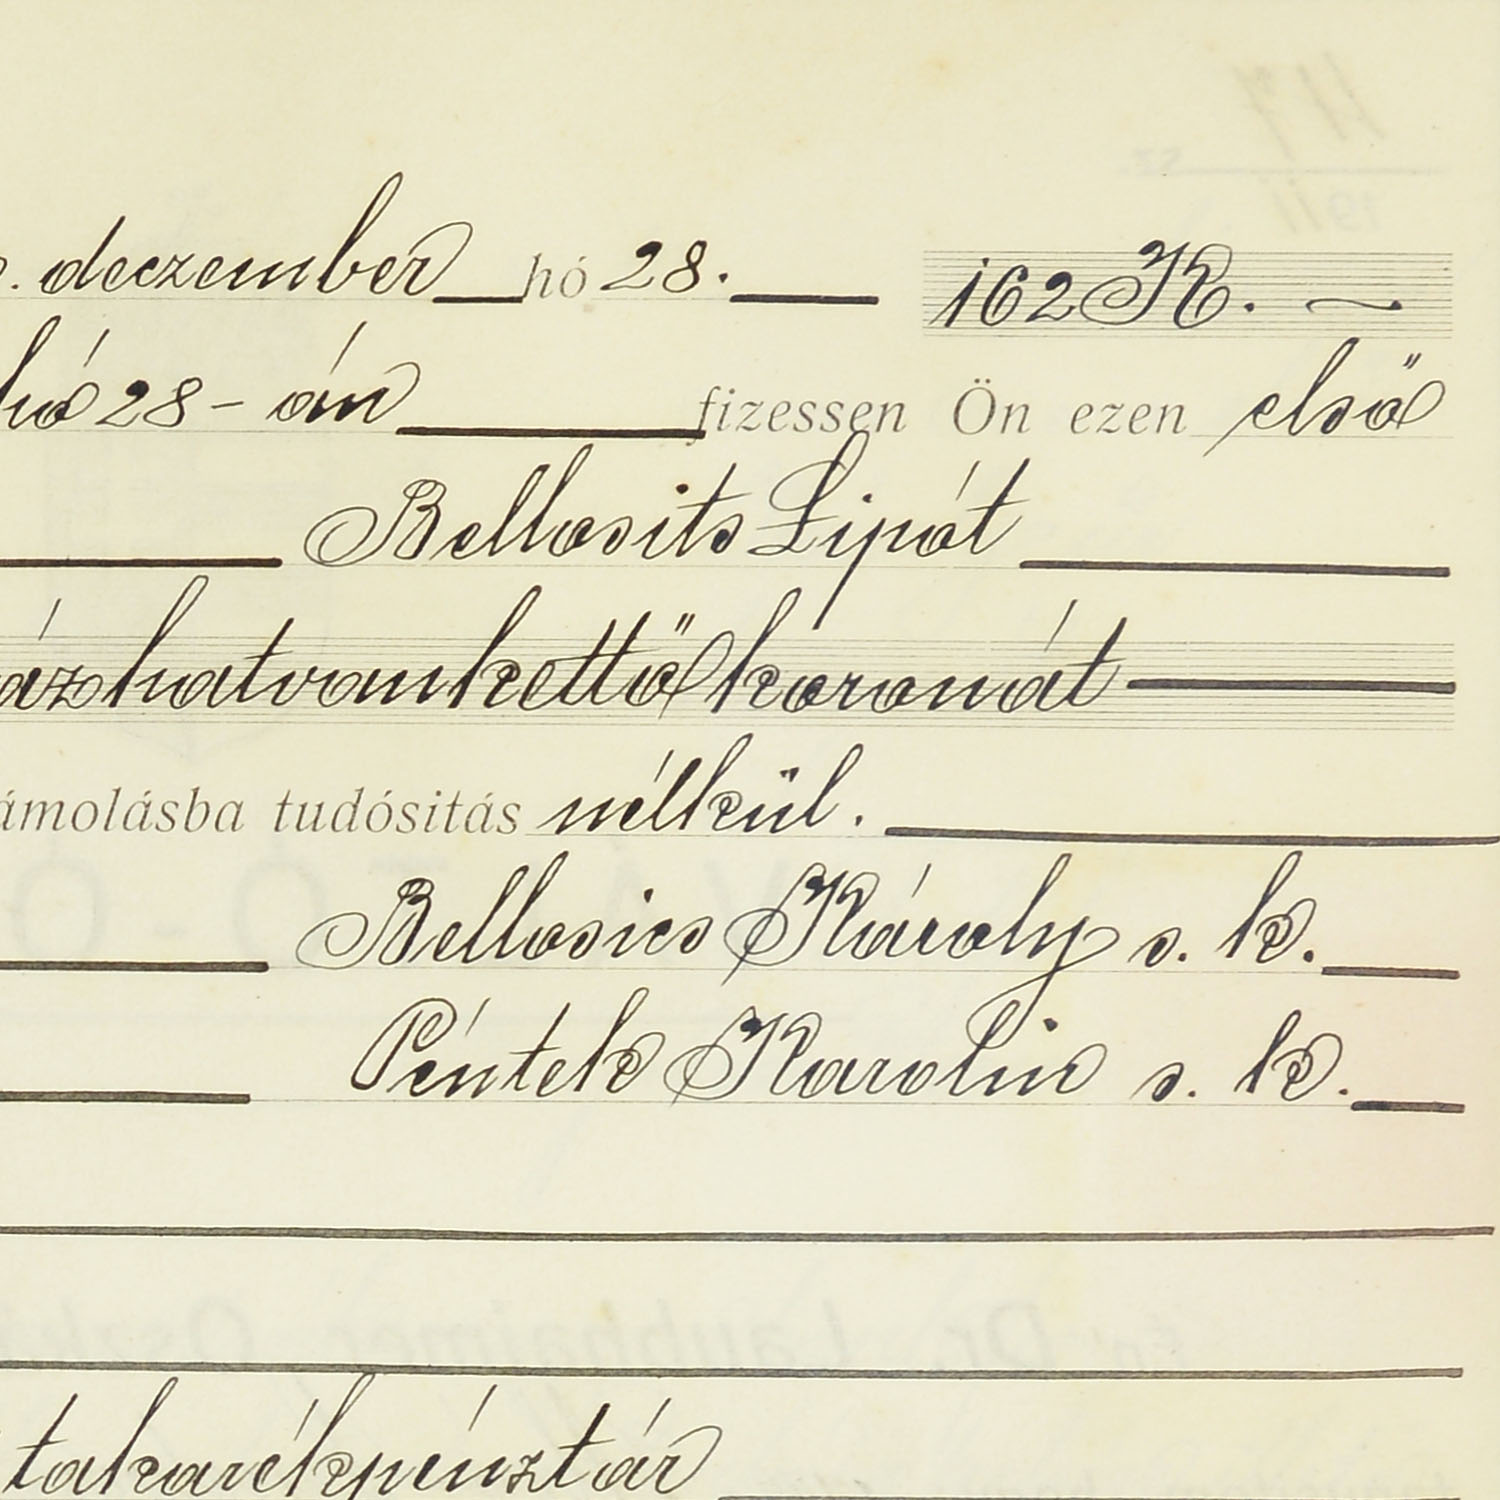 . deczember hó 28. 162 K. ~
hó 28-án fizessen Ön ezen első
Bellosits Lipót
ázhatvankettő koronát
ámolásba tudósitás nélkül.
Bellosics Károly s. k.
Péntek Karolin s. k.
takarékpénztár